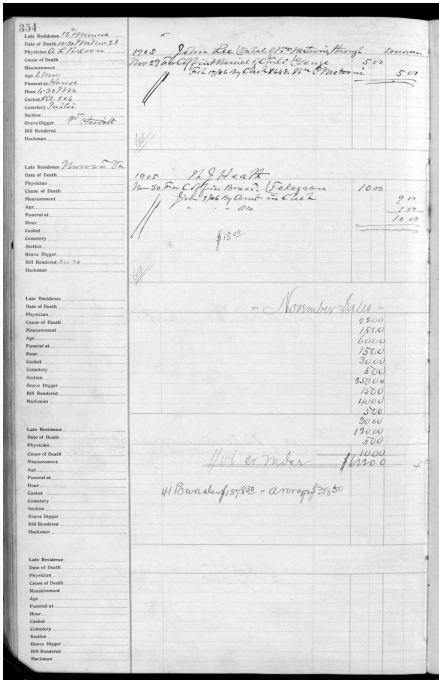 354
Late Residence 12th Monroe
Date of Death 10-30 PM Nov 28
Physician
Cause of Death
Measurement
Age 6 Mos
Funeral at House
Hour 4-30 PM
Casket 2x6
Cemetery
Section
Grave Digger
Bill Rendered
Hackman
1905 John Lee
Nov 29 For Coffin & Burial of Child 5 00
Feb 17/06 By Cash 5 00
Late Residence
Date of Death
Physician
Cause of Death
Measurement
Age
Funeral at
Hour
Casket
Cemetery
Section
Grave Digger
Bill Rendered
Hackman
1905 Heath
Nov 30 For Coffin Boxed, Telegram 10 00
By Amt in Cash 9 00
1 00
10 00
$15 00
Late Residence
Date of Death
Physician
Cause of Death
Measurement
Age
Funeral at
Hour
Casket
Cemetery
Section
Grave Digger
Bill Rendered
Hackman
= November Sales =
22 00
15 00
60 00
15 00
30 00
5 00
250 00
15 00
40 00
5 00
30 00
120 00
5 00
10 00
$622 00
Late Residence
Date of Death
Physician
Cause of Death
Measurement
Age
Funeral at
Hour
Casket
Cemetery
Section
Grave Digger
Bill Rendered
Hackman
41 Burials $1578 50 = average $38 50
Late Residence
Date of Death
Physician
Cause of Death
Measurement
Age
Funeral at
Hour
Casket
Cemetery
Section
Grave Digger
Bill Rendered
Hackman